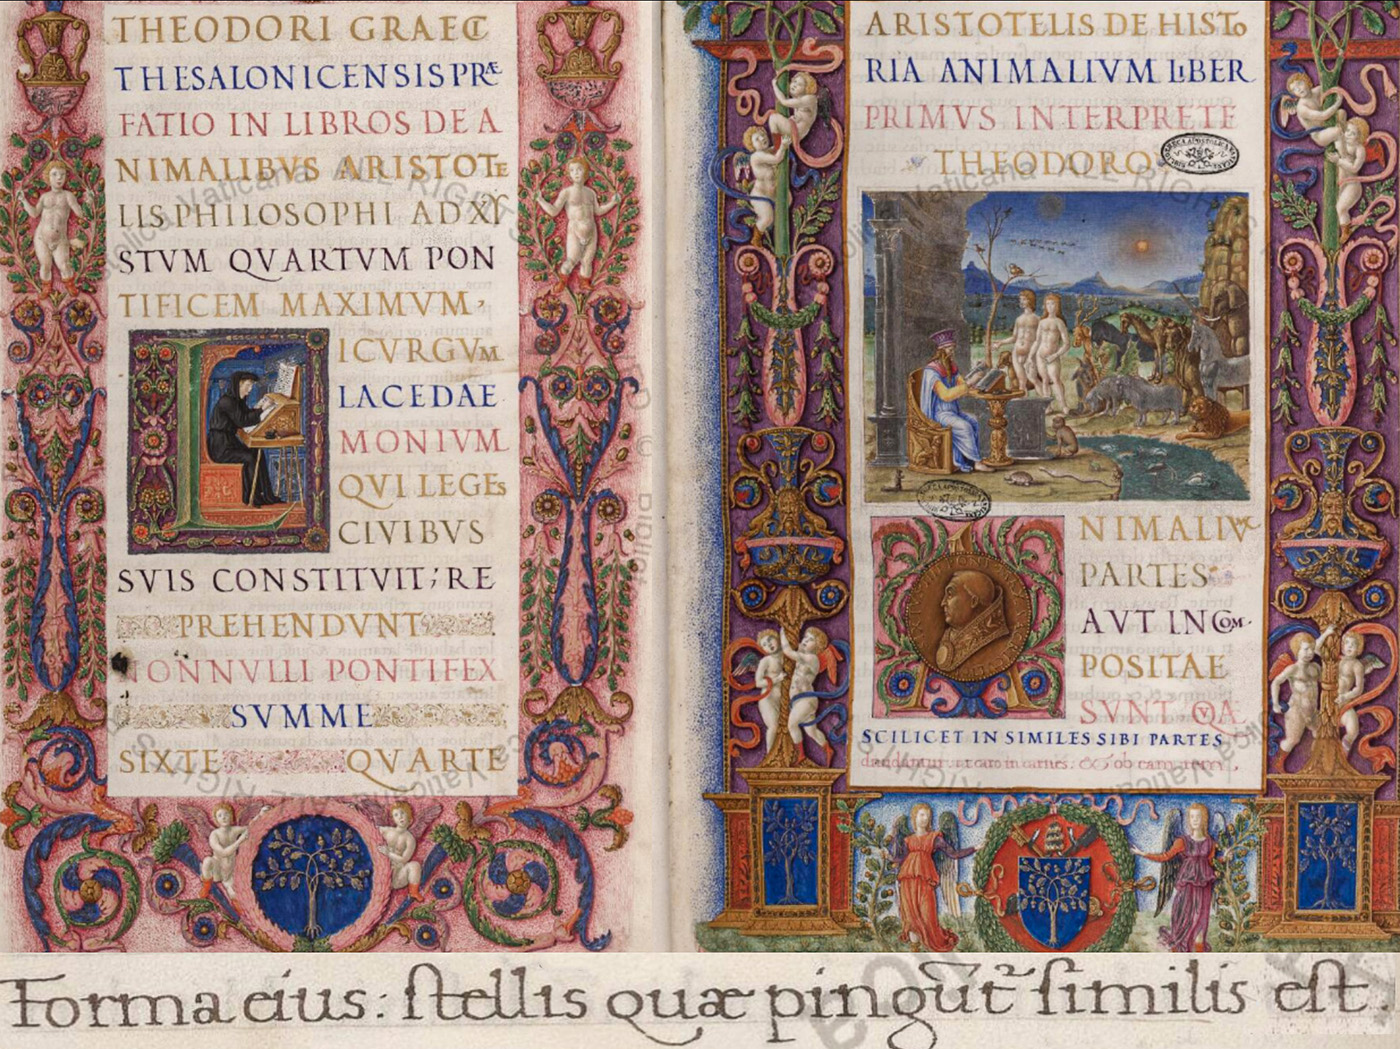 THEODORI GRAECI
THESALONICENSIS PRÆ
FATIO IN LIBROS DE A
NIMALIBVS ARISTOTE
LIS PHILOSOPHI AD XY
STVM QVARTVM PON
TIFICEM MAXIMVM,
LICVRGVM
LACEDAE
MONIVM
QVI LEGES
CIVIBVS
SVIS CONSTITVIT; RE
PREHENDVNT
NONNVLLI PONTIFEX
SVMME
SIXTE QVARTE
ARISTOTELIS DE HISTO
RIA ANIMALIVM LIBER
PRIMVS INTERPRETE
THEODORO
NIMALIVM
PARTES
AVT INCOM-
POSITAE
SVNT QVÆ
SCILICET IN SIMILES SIBI PARTES
diuiduntur ut caro in carnes: & ob eam rem,
Forma eius: stellis quæ pingūt᷑ similis est.